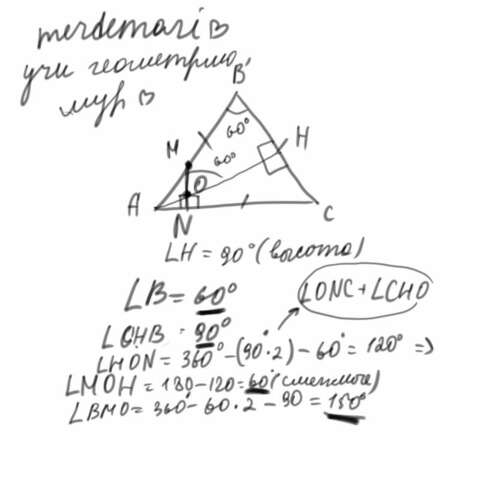 merdemari ♡
учи геометрию,
мур ♡
B
60°
M
H
60°
O
A
N
C
∠H = 90° (высота)
∠B = 60°
∠ONC + ∠CHO
∠OHB = 90°
∠HON = 360° - (90°·2) - 60° = 120° =>
∠MOH = 180 - 120 = 60° (смежные)
∠BMO = 360° - 60·2 - 90 = 150°